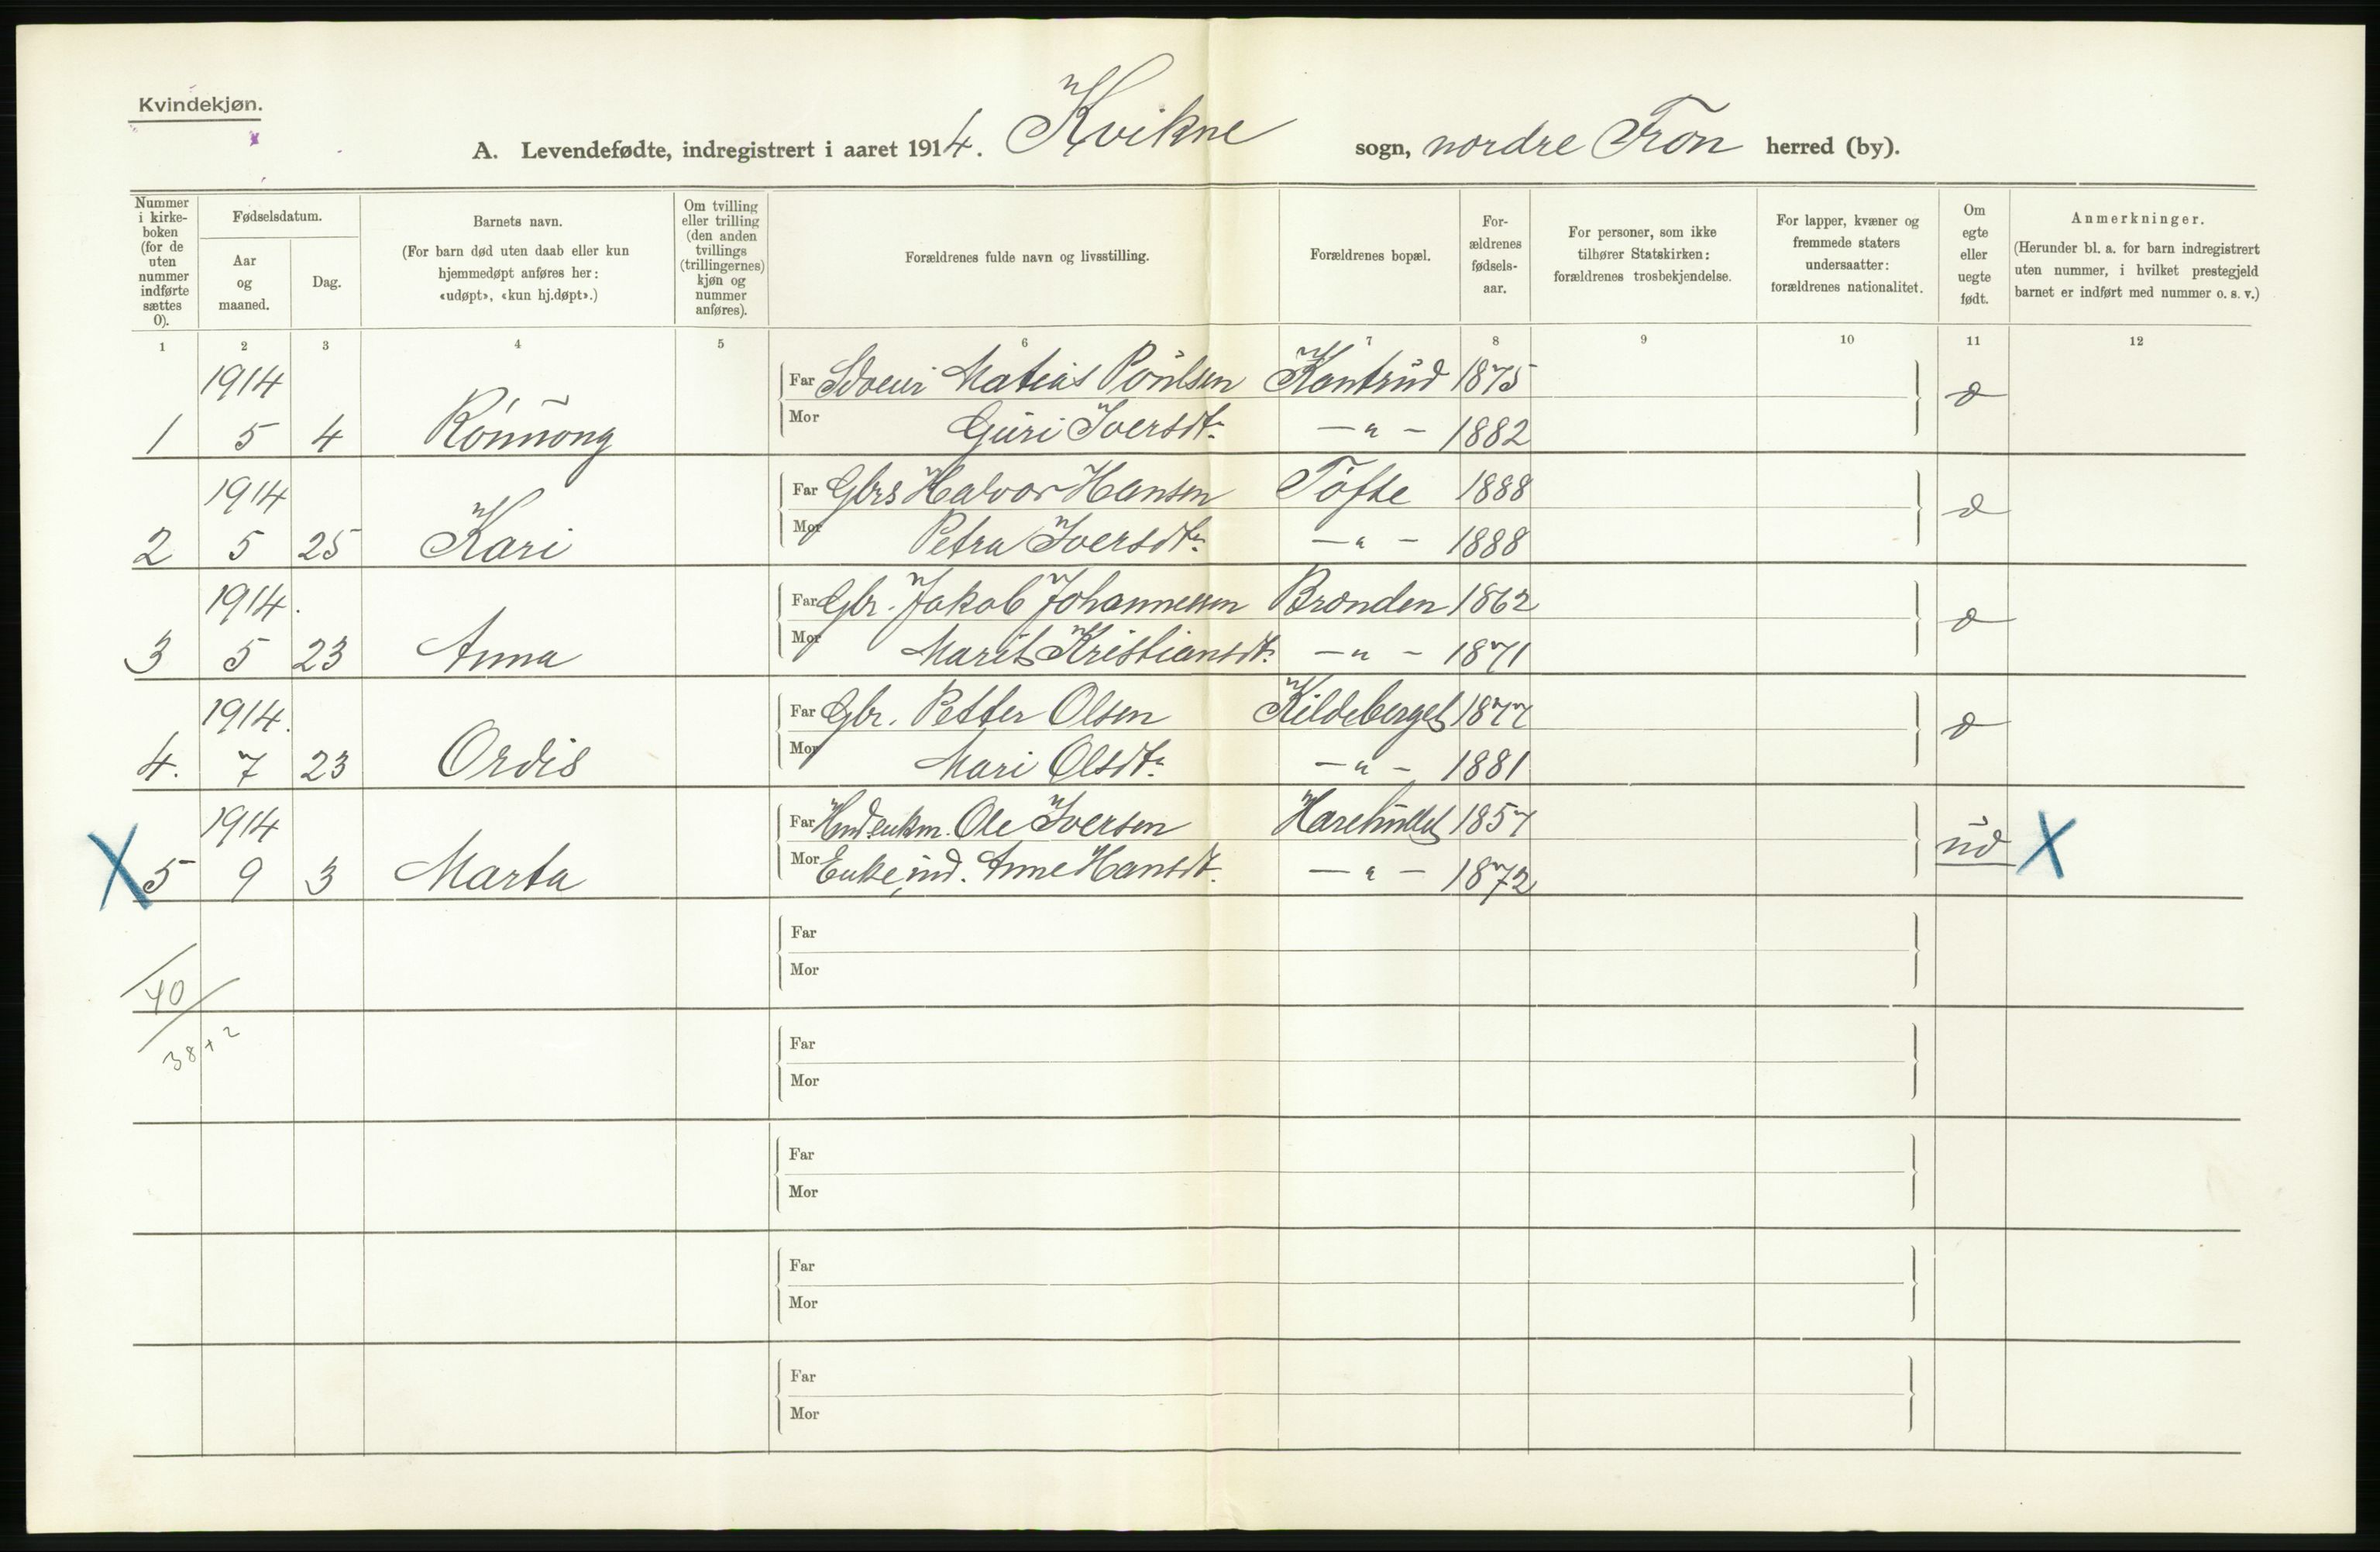 Kvindekjøn.
A. Levendefødte, indregistrert i aaret 1914. Kvikne sogn, nordre Fron herred (by).
Nummer i kirke- boken (for de uten nummer indførte sættes 0).
Fødselsdatum.
Aar og maaned.
Dag.
Barnets navn.
(For barn død uten daab eller kun hjemmedøpt anføres her: «udøpt», «kun hj.døpt».)
Om tvilling eller trilling (den anden tvillings (trillingernes) kjøn og nummer anføres).
Forældrenes fulde navn og livsstilling.
Forældrenes bopæl.
For- ældrenes fødsels- aar.
For personer, som ikke tilhører Statskirken: forældrenes trosbekjendelse.
For lapper, kvæner og fremmede staters undersaatter: forældrenes nationalitet.
Om egte eller uegte født.
Anmerkninger.
(Herunder bl. a. for barn indregistrert uten nummer, i hvilket prestegjeld barnet er indført med nummer o. s. v.)
1 2 3 4 5 6 7 8 9 10 11 12
1914 Far Matias Poulsen Kantrud 1875
1 5 4 Rønnong Mor Guri Iversdt. — " — 1882
1914 Far Gbrs Halvor Hansen Tofte 1888
2 5 25 Kari Mor Petra Iversdtr. — " — 1888
1914. Far Gbr. Jakob Johannessen Brænden 1862
3 5 23 Anna Mor Marit Kristiansdt. — " — 1871
1914. Far Gbr. Petter Olsen Kildeberget 1877
4. 7 23 Ordis Mor Mari Olsdtr. — " — 1881
1914 Far Ole Iversen 1857 ud X
X 5 9 3 Marta Mor Enke, ind. Anne Hansdt. — " — 1872
Far
Mor
40
38+2
Far
Mor
Far
Mor
Far
Mor
Far
Mor